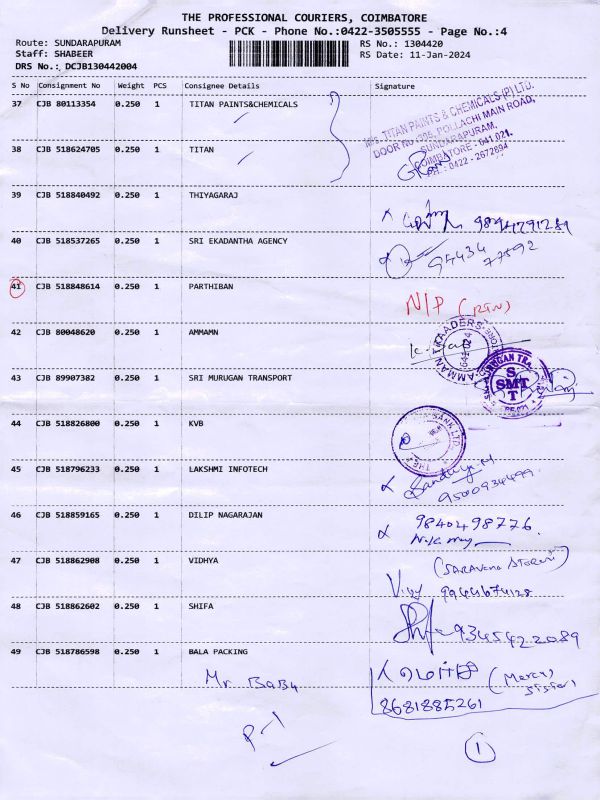 THE PROFESSIONAL COURIERS, COIMBATORE
Delivery Runsheet - PCK - Phone No.:0422-3505555 - Page No.:4
Route: SUNDARAPURAM RS No.: 1304420
Staff: SHABEER RS Date: 11-Jan-2024
DRS No.: DCJB130442004
S No Consignment No Weight PCS Consignee Details Signature
37 CJB 80113354 0.250 1 TITAN PAINTS&CHEMICALS
M/s. TITAN PAINTS & CHEMICALS (P) LTD.
DOOR No POLLACHI MAIN ROAD,
SUNDARAPURAM,
COIMBATORE - 641 021.
PH.: 0422 - 2672894
38 CJB 518624705 0.250 1 TITAN
39 CJB 518840492 0.250 1 THIYAGARAJ
40 CJB 518537265 0.250 1 SRI EKADANTHA AGENCY
94434
77592
41 CJB 518848614 0.250 1 PARTHIBAN N/P (RTN)
42 CJB 80048620 0.250 1 AMMAMN
AMMAN TRAADERS
43 CJB 89907382 0.250 1 SRI MURUGAN TRANSPORT
MURUGAN TRA
S
SMT
T
44 CJB 518826800 0.250 1 KVB
BANK LTD.
45 CJB 518796233 0.250 1 LAKSHMI INFOTECH
Sandhya.M
9500934499
46 CJB 518859165 0.250 1 DILIP NAGARAJAN 9840498776
47 CJB 518862908 0.250 1 VIDHYA (SARAVANA STORES)
99441674128
48 CJB 518862602 0.250 1 SHIFA
9345422089
49 CJB 518786598 0.250 1 BALA PACKING
Mr. BABU (Mercy
sister)
8681885261
P-1
1